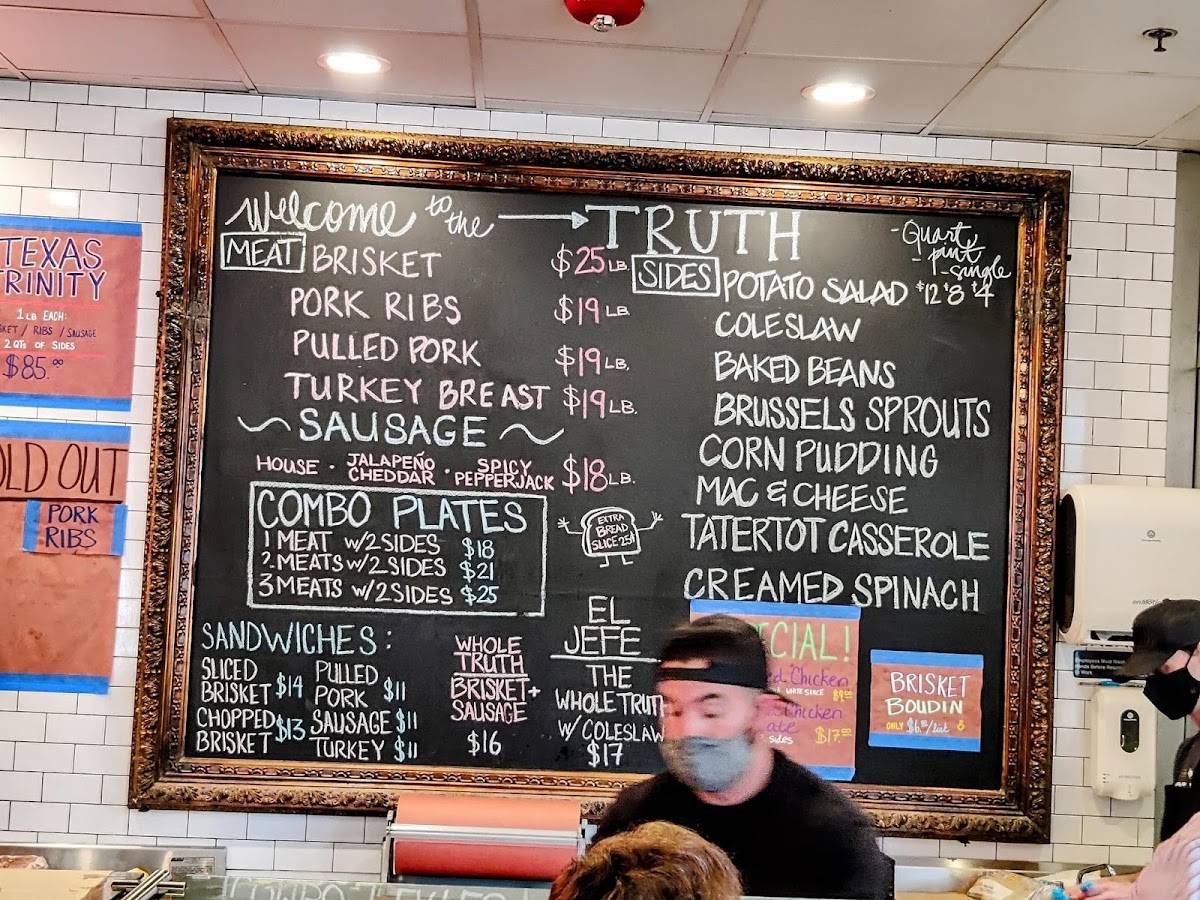 Welcome to the → TRUTH
MEAT BRISKET $25 LB.
PORK RIBS $19 LB
PULLED PORK $19 LB.
TURKEY BREAST $19 LB.
~ SAUSAGE ~
HOUSE · JALAPEÑO CHEDDAR · SPICY PEPPERJACK $18 LB.
COMBO PLATES
1 MEAT W/2 SIDES $18
2 MEATS W/2 SIDES $21
3 MEATS W/2 SIDES $25
EXTRA
BREAD
SLICE 25¢
SANDWICHES:
SLICED BRISKET $14
PULLED PORK $11
CHOPPED BRISKET $13
SAUSAGE $11
TURKEY $11
WHOLE
TRUTH
BRISKET+
SAUSAGE
$16
EL
JEFE
THE
WHOLE TRUTH
W/ COLESLAW
$17
- Quart
- pint
- single
$12 $8 $4
SIDES POTATO SALAD
COLESLAW
BAKED BEANS
BRUSSELS SPROUTS
CORN PUDDING
MAC & CHEESE
TATERTOT CASSEROLE
CREAMED SPINACH
ECIAL!
ed Chicken
WHITE $9.00
Chicken
ate
sides $17.00
BRISKET
BOUDIN
ONLY
TEXAS
TRINITY
1 LB EACH:
KET / RIBS / SAUSAGE
2 QTS OF SIDES
$85.00
OLD OUT
PORK
RIBS
Employees Must Wash
Hands Before Returning
To Work